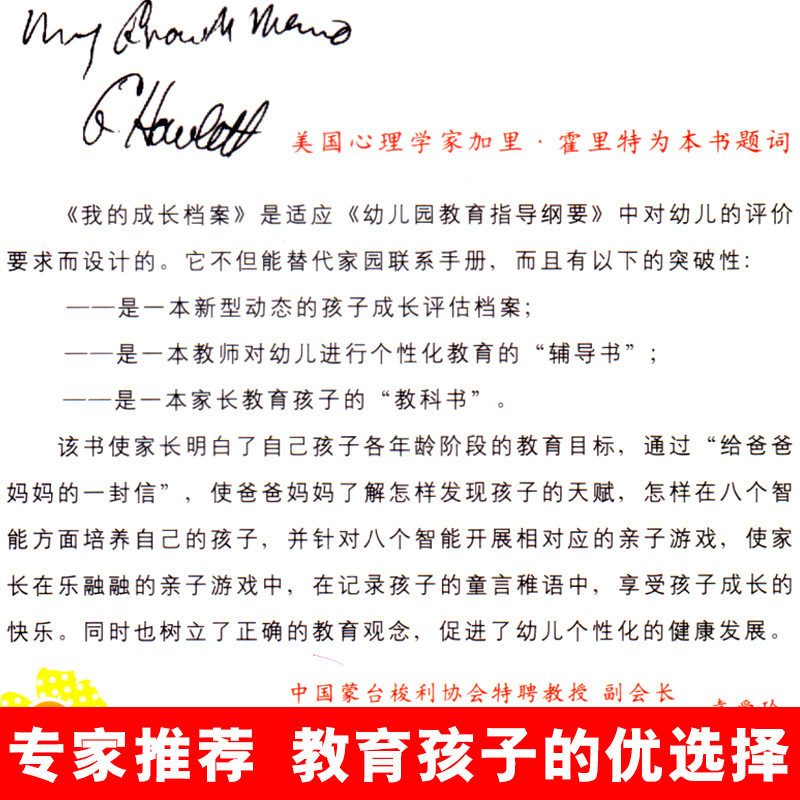 My Growth Memo
G. Howlett
美国心理学家加里·霍里特为本书题词
《我的成长档案》是适应《幼儿园教育指导纲要》中对幼儿的评价
要求而设计的。它不但能替代家园联系手册，而且有以下的突破性：
——是一本新型动态的孩子成长评估档案；
——是一本教师对幼儿进行个性化教育的“辅导书”；
——是一本家长教育孩子的“教科书”。
该书使家长明白了自己孩子各年龄阶段的教育目标，通过“给爸爸
妈妈的一封信”，使爸爸妈妈了解怎样发现孩子的天赋，怎样在八个智
能方面培养自己的孩子，并针对八个智能开展相对应的亲子游戏，使家
长在乐融融的亲子游戏中，在记录孩子的童言稚语中，享受孩子成长的
快乐。同时也树立了正确的教育观念，促进了幼儿个性化的健康发展。
中国蒙台梭利协会特聘教授 副会长
专家推荐 教育孩子的优选择